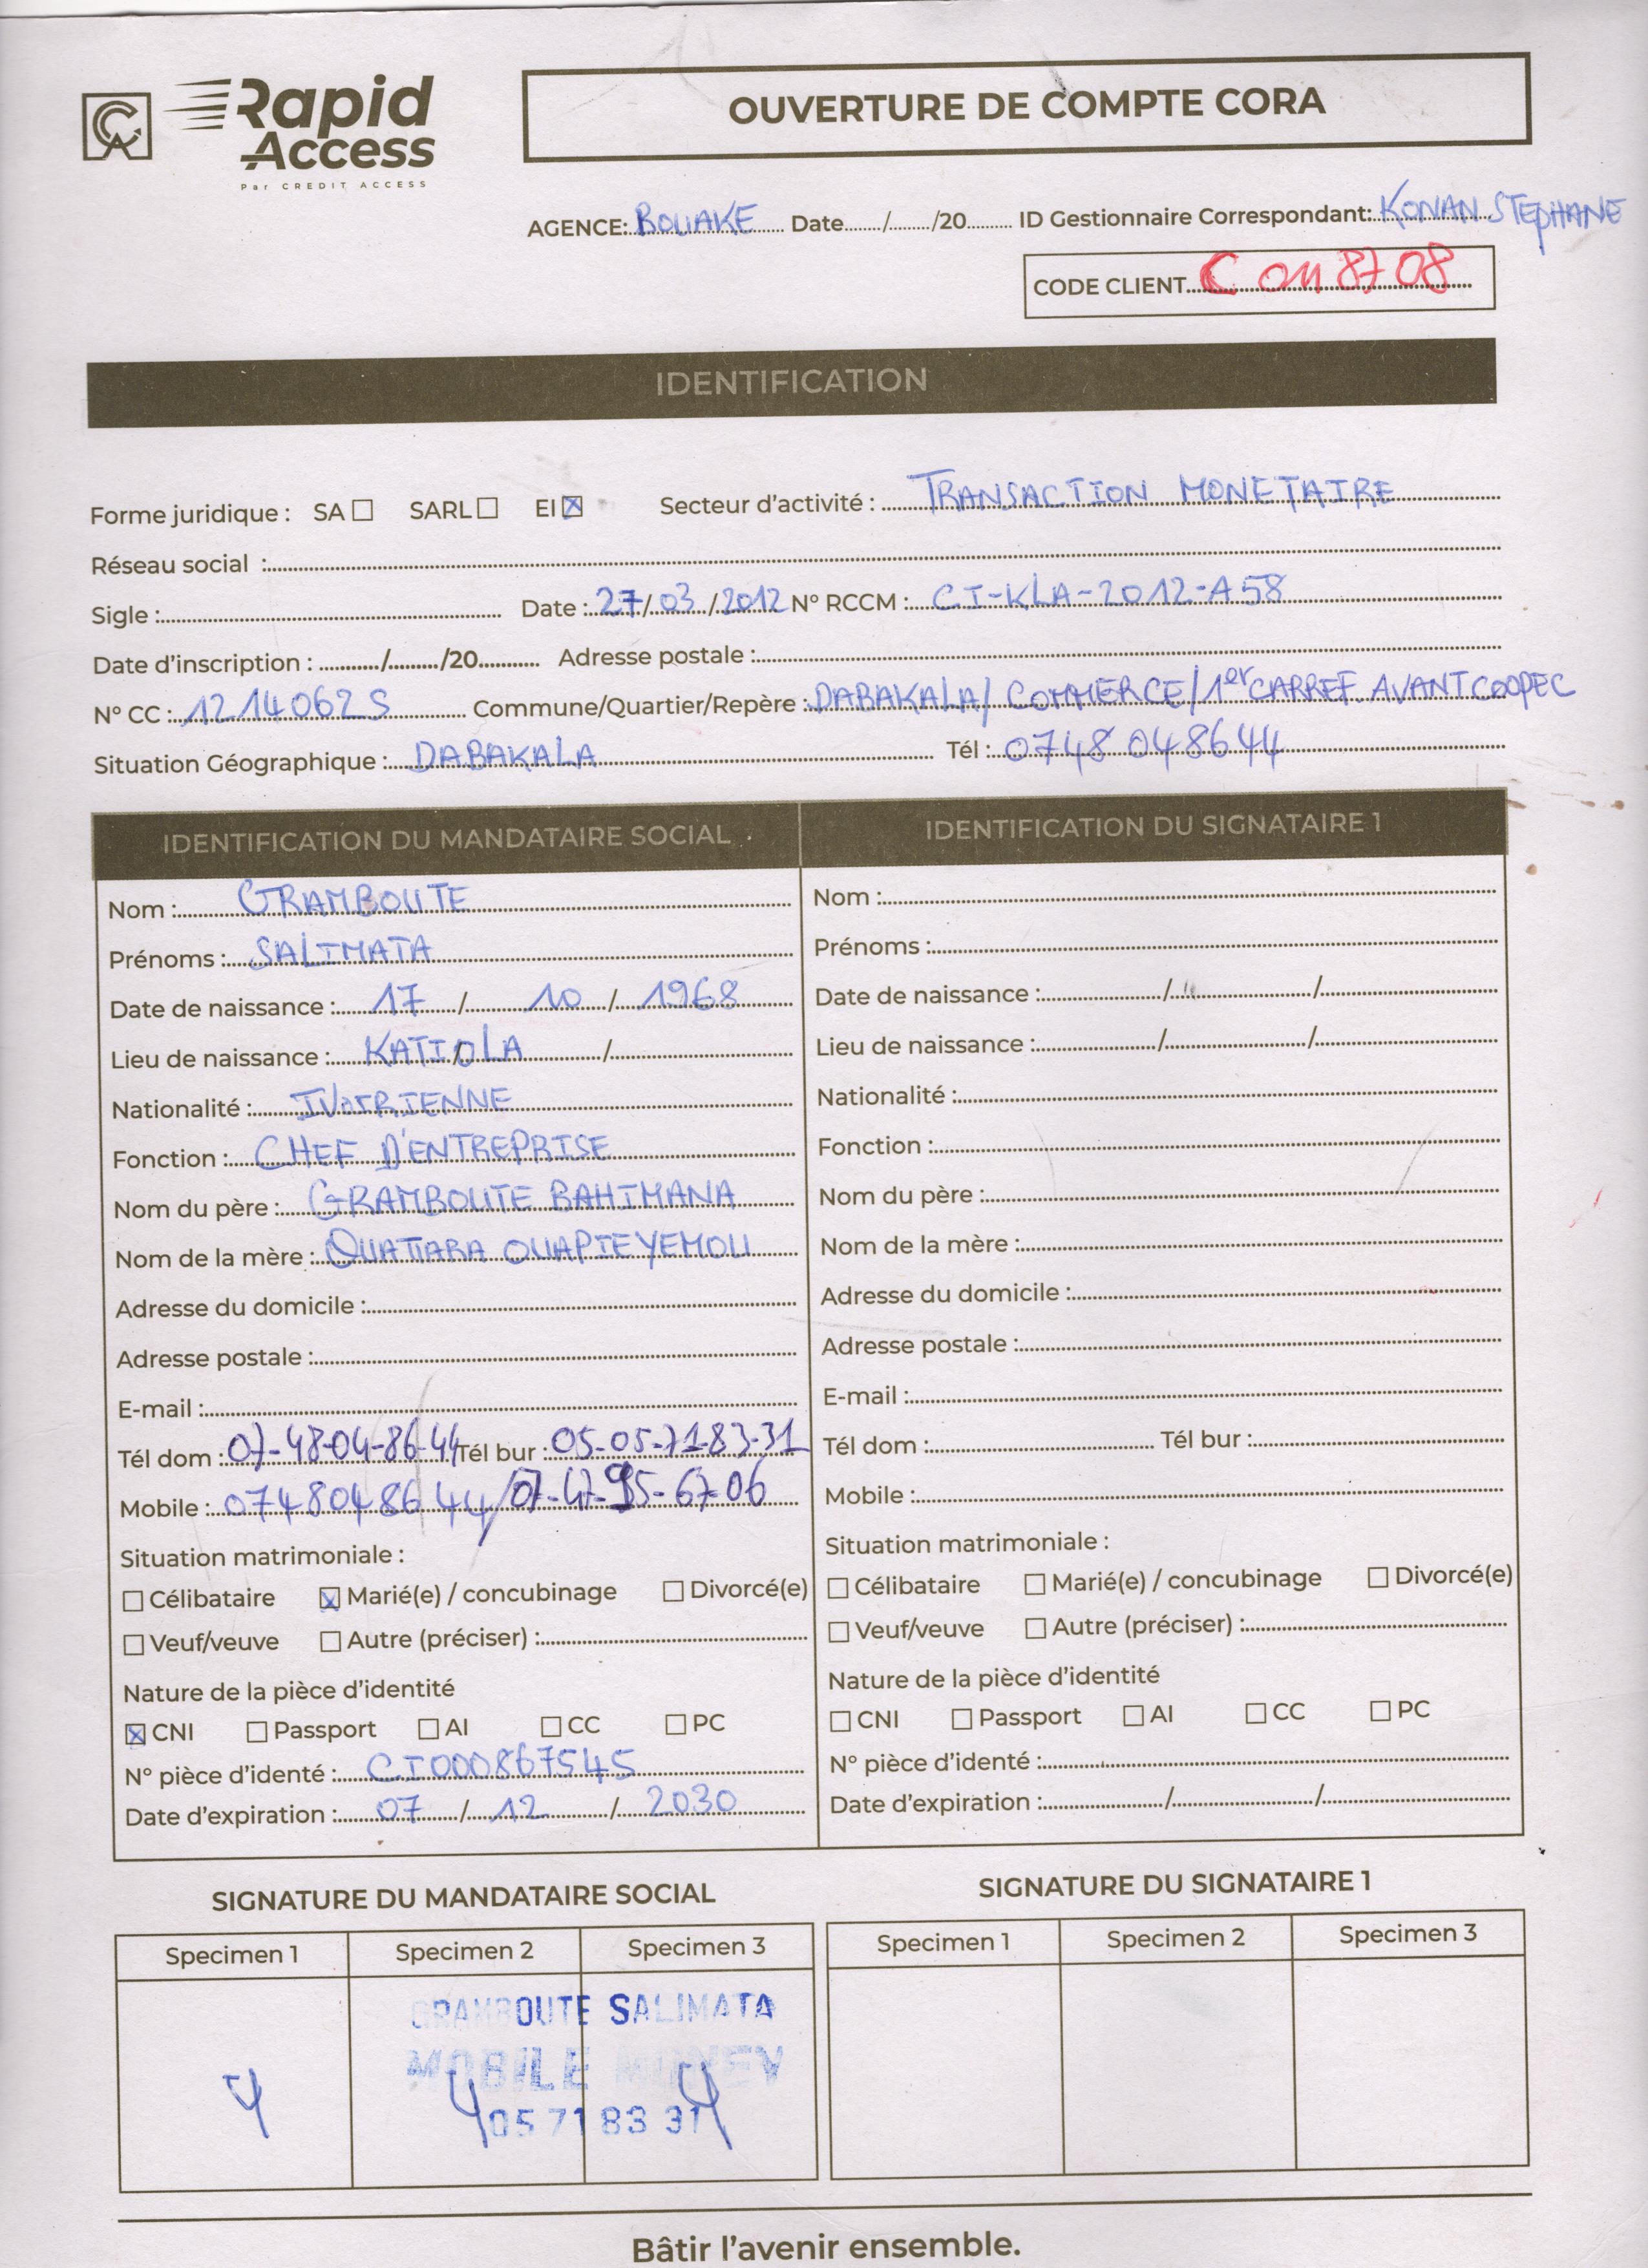 CA Rapid Access
Par CREDIT ACCESS
OUVERTURE DE COMPTE CORA
AGENCE: BOUAKE Date......../......../20.......... ID Gestionnaire Correspondant: KONAN STEPHANE
CODE CLIENT C 0118708
IDENTIFICATION
Forme juridique : SA ☐ SARL ☐ EI ☒ Secteur d'activité : TRANSACTION MONETAIRE
Réseau social :
Sigle : Date : 27/03/2012 N° RCCM : CI-KLA-2012-A58
Date d'inscription : .........../........./20........... Adresse postale :
N° CC : 1214062S Commune/Quartier/Repère : DABAKALA/ COMMERCE/1er CARREF. AVANT COOPEC
Situation Géographique : DABAKALA Tél : 0748048644
IDENTIFICATION DU MANDATAIRE SOCIAL
Nom : GRAMBOUTE
Prénoms : SALIMATA
Date de naissance : 17 / 10 / 1968
Lieu de naissance : KATIOLA /
Nationalité : IVOIRIENNE
Fonction : CHEF D'ENTREPRISE
Nom du père : GRAMBOUTE BAHIMANA
Nom de la mère : OUATTARA OUAPIEYEMOU
Adresse du domicile :
Adresse postale :
E-mail :
Tél dom : 07-48-04-86-44 Tél bur : 05-05-71-83-31
Mobile : 0748048644/07-47-95-67-06
Situation matrimoniale :
☐ Célibataire ☒ Marié(e) / concubinage ☐ Divorcé(e)
☐ Veuf/veuve ☐ Autre (préciser) :
Nature de la pièce d'identité
☒ CNI ☐ Passport ☐ AI ☐ CC ☐ PC
N° pièce d'identé : CI000867545
Date d'expiration : 07 / 12 / 2030
IDENTIFICATION DU SIGNATAIRE 1
Nom :
Prénoms :
Date de naissance : / /
Lieu de naissance : / /
Nationalité :
Fonction :
Nom du père :
Nom de la mère :
Adresse du domicile :
Adresse postale :
E-mail :
Tél dom : Tél bur :
Mobile :
Situation matrimoniale :
☐ Célibataire ☐ Marié(e) / concubinage ☐ Divorcé(e)
☐ Veuf/veuve ☐ Autre (préciser) :
Nature de la pièce d'identité
☐ CNI ☐ Passport ☐ AI ☐ CC ☐ PC
N° pièce d'identé :
Date d'expiration : / /
SIGNATURE DU MANDATAIRE SOCIAL
Specimen 1 Specimen 2 Specimen 3
GRAMBOUTE SALIMATA
MOBILE MONEY
05 71 83 31
SIGNATURE DU SIGNATAIRE 1
Specimen 1 Specimen 2 Specimen 3
Bâtir l'avenir ensemble.